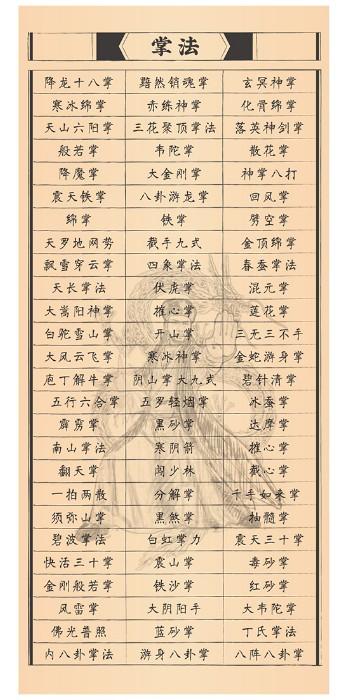 掌法
降龙十八掌 黯然销魂掌 玄冥神掌
寒冰绵掌 赤练神掌 化骨绵掌
天山六阳掌 三花聚顶掌法 落英神剑掌
般若掌 韦陀掌 散花掌
降魔掌 大金刚掌 神掌八打
震天铁掌 八卦游龙掌 回风掌
绵掌 铁掌 劈空掌
天罗地网势 截手九式 金顶绵掌
飘雪穿云掌 四象掌法 春蚕掌法
天长掌法 伏虎掌 混元掌
大嵩阳神掌 推心掌 莲花掌
白驼雪山掌 开山掌 三无三不手
大风云飞掌 寒冰神掌 金蛇游身掌
庖丁解牛掌 阴山掌大九式 碧针清掌
五行六合掌 五罗轻烟掌 冰蚕掌
霹雳掌 黑砂掌 达摩掌
南山掌法 寒阴箭 摧心掌
翻天掌 闯少林 截心掌
一拍两散 分解掌 千手如来掌
须弥山掌 黑煞掌 抽髓掌
碧波掌法 白虹掌力 震天三十掌
快活三十掌 震山掌 毒砂掌
金刚般若掌 铁沙掌 红砂掌
风雷掌 大阴阳手 大韦陀掌
佛光普照 蓝砂掌 丁氏掌法
内八卦掌法 游身八卦掌 八阵八卦掌